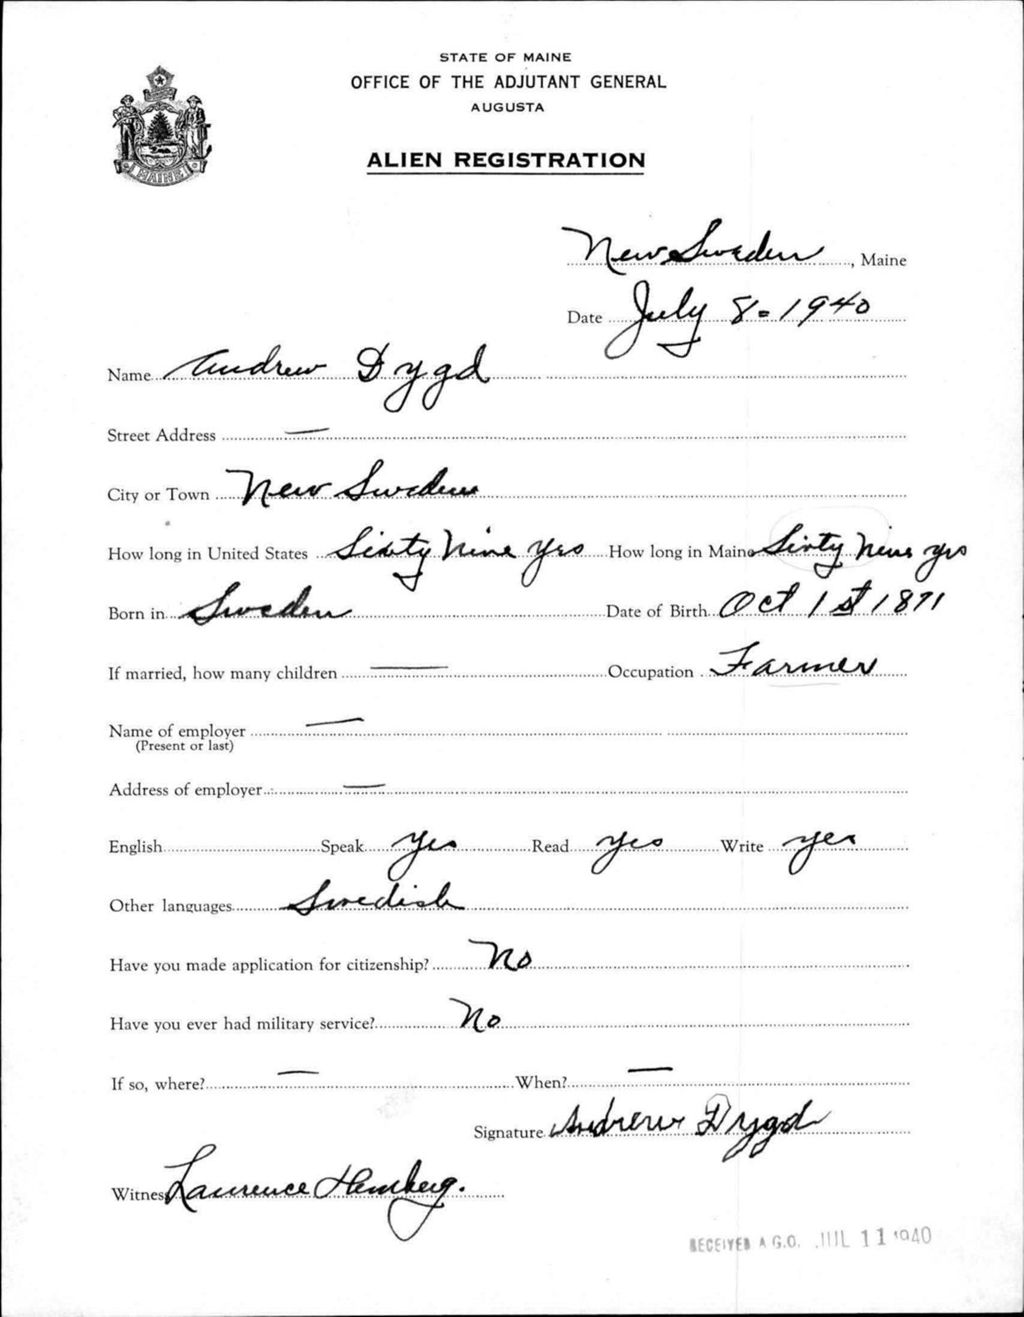 STATE OF MAINE
OFFICE OF THE ADJUTANT GENERAL
AUGUSTA
ALIEN REGISTRATION
MAINE
New Sweden, Maine
Date July 8 = 1940
Name Andrew Dygd
Street Address —
City or Town New Sweden
How long in United States Sixty Nine yrs How long in Maine Sixty Nine yrs
Born in Sweden Date of Birth Oct 1st 1871
If married, how many children — Occupation Farmer
Name of employer —
(Present or last)
Address of employer —
English Speak yes Read yes Write yes
Other languages Swedish
Have you made application for citizenship? No
Have you ever had military service? No
If so, where? — When? —
Signature Andrew Dygd
Witness Laurence Hemberg.
RECEIVED A.G.O. JUL 11 1940